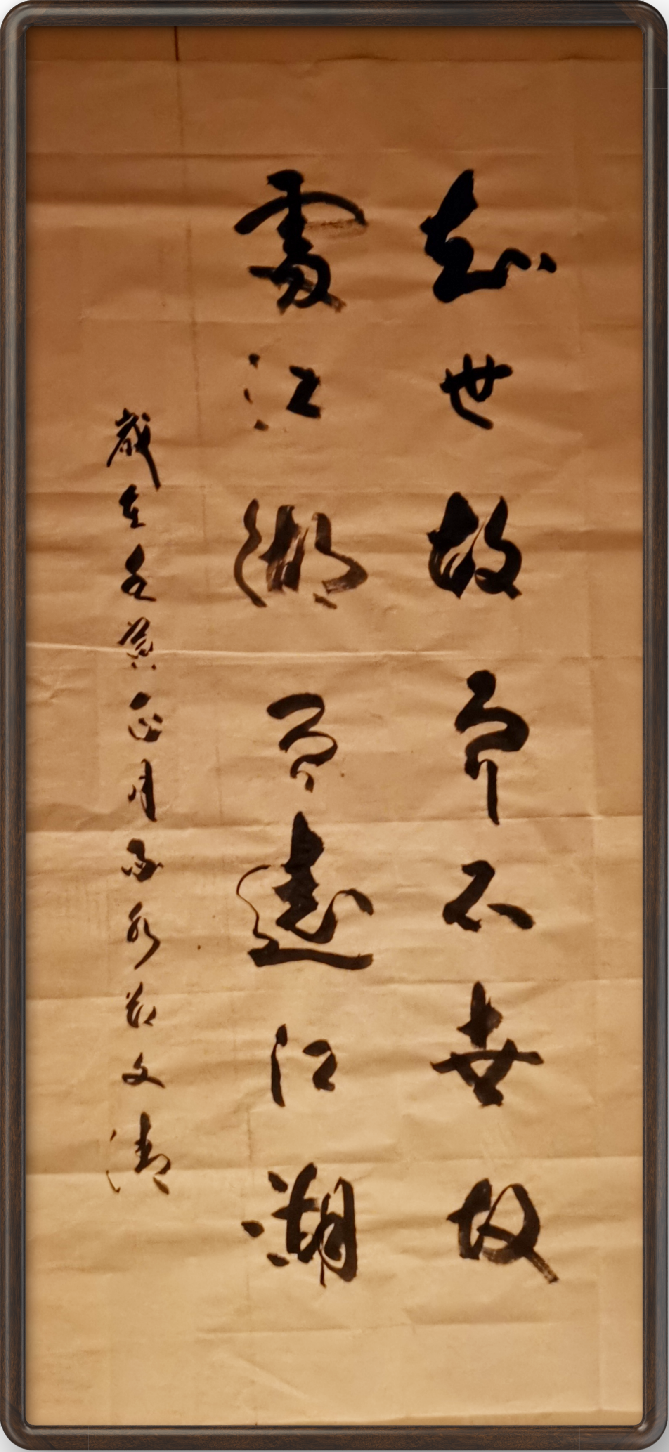 知世故而不世故
處江湖而遠江湖
歲在壬寅正月文清